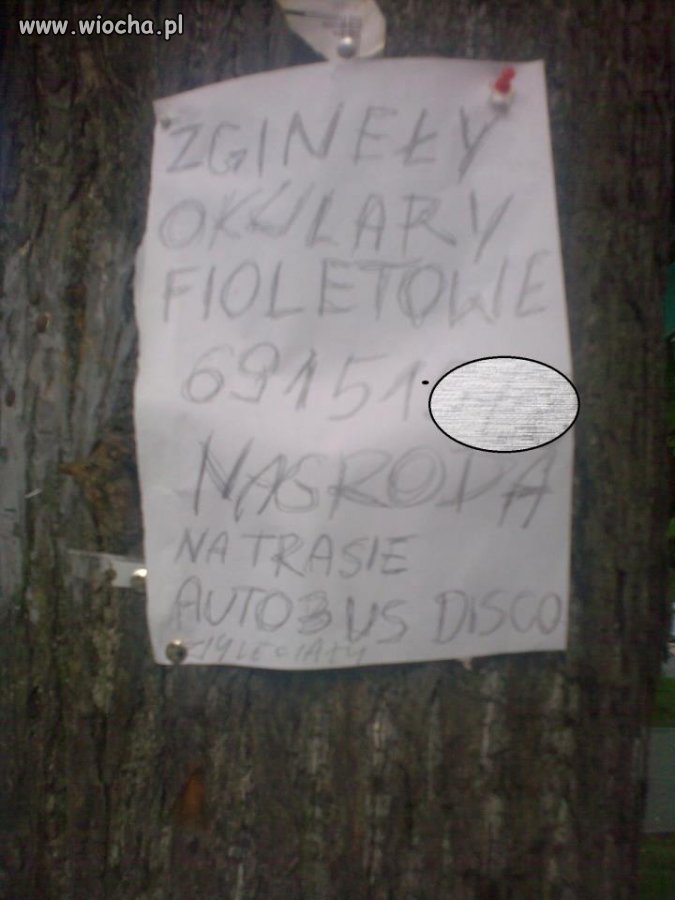 www.wiocha.pl
ZGINEŁY
OKULARY
FIOLETOWE
69151
NAGRODA
NA TRASIE
AUTOBUS DISCO